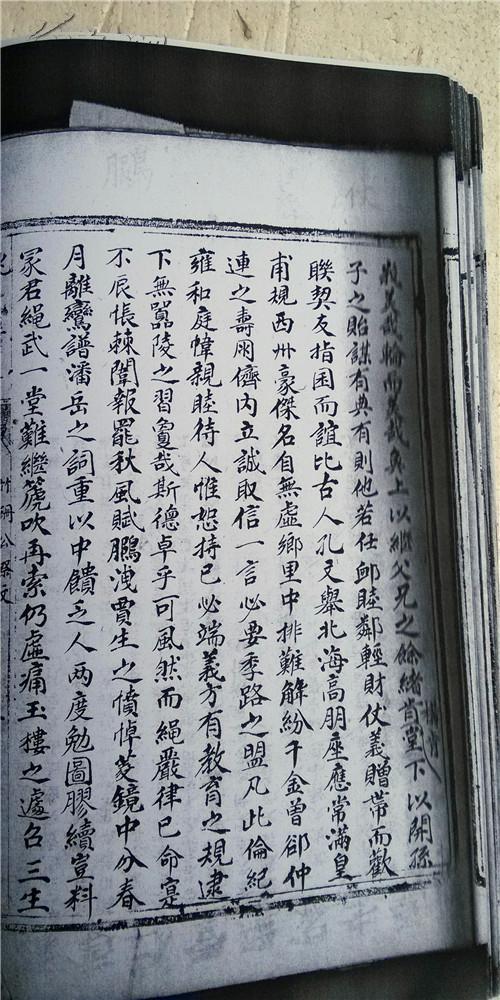 哉美哉輪而美哉奐上以繼父兄之餘緒肯堂下以開孫
子之貽謀有典有則他若任卹睦鄰輕財仗義贈帶而歡
聯契友指囷而誼比古人孔文舉北海高朋座應常滿皇
甫規西州豪傑名自無虛鄉里中排難解紛千金曾卻仲
連之壽朋儕內立誠取信一言必要季路之盟凡此倫紀
雍和庭幃親睦待人惟恕持己必端義方有教育之規逮
下無嚚陵之習夐哉斯德卓乎可風然而繩嚴律己命寔
不辰悵棘闈報罷秋風賦鵩洩賈生之憤悼菱鏡中分春
月離鸞譜潘岳之詞重以中饋乏人兩度勉圖膠續豈料
冢君繩武一堂難繼篪吹再索仍虛痛玉樓之遽召三生
竹 公祭文
鵬